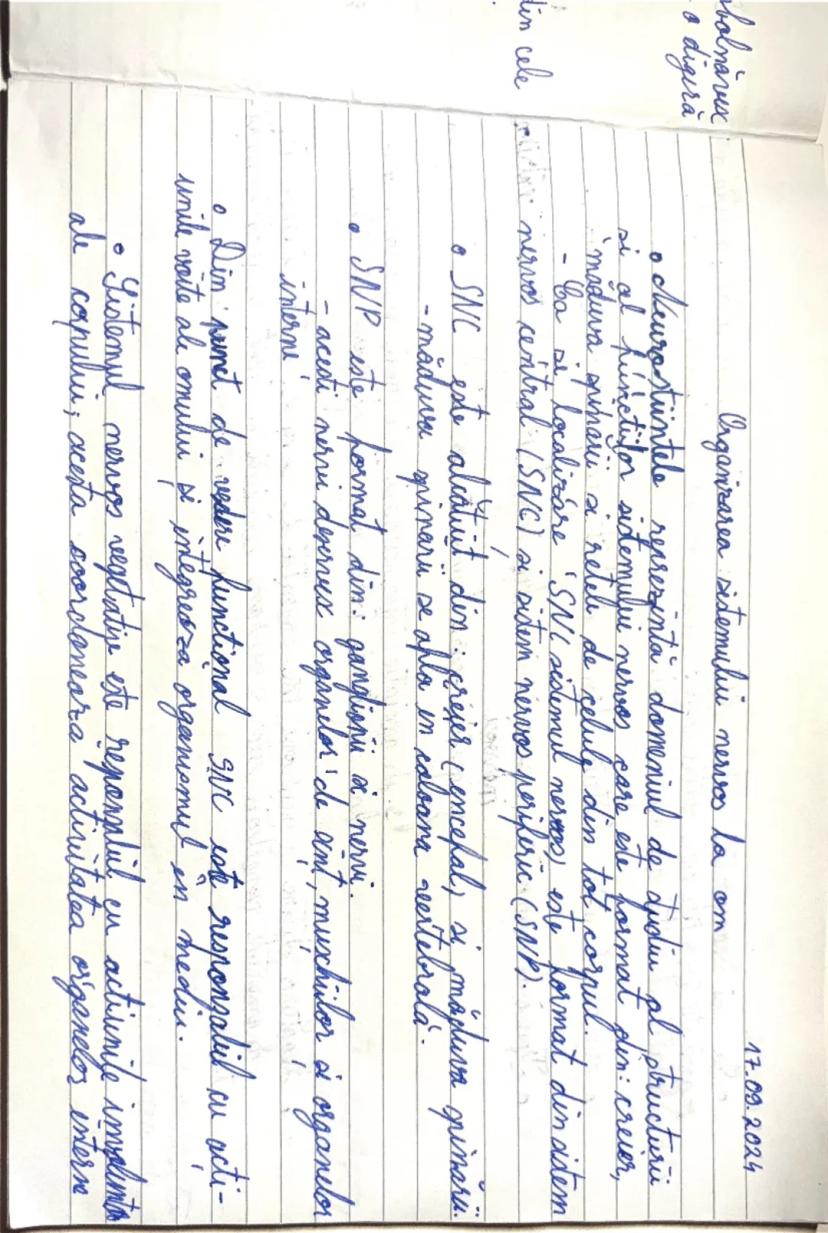 bolnăvex
o digeră
din cele
17.09.2024
Organizarea sistemului nervos la om
• Neurostiintele reprezintă domeniul de studiu al structurii
si al funcțiilor sistemului nervos care este format din: creier,
măduva spinarii si retele de celule din tot corpul.
- Ca si localizare SNC sistemul nervos) este format din sistem
nervos central (SNC) si sistem nervos periferic (SNP).
• SNC este alcătuit din: creier (encefal) si măduva spinării.
- măduva spinarii se afla in coloana vertebrală.
• SNP este format din: ganglioni si nervi.
- acesti nervi deservex organelor de simt, muschiilor si organelor
interne
• Din punct de vedere functional SNC este responsabil cu acti-
unile voite ale omului si integreaza organismul in mediu.
• Sistemul nervos vegetativ este responsabil cu actiunile
ale corpului; acesta coordoneaza activitatea organelor interne